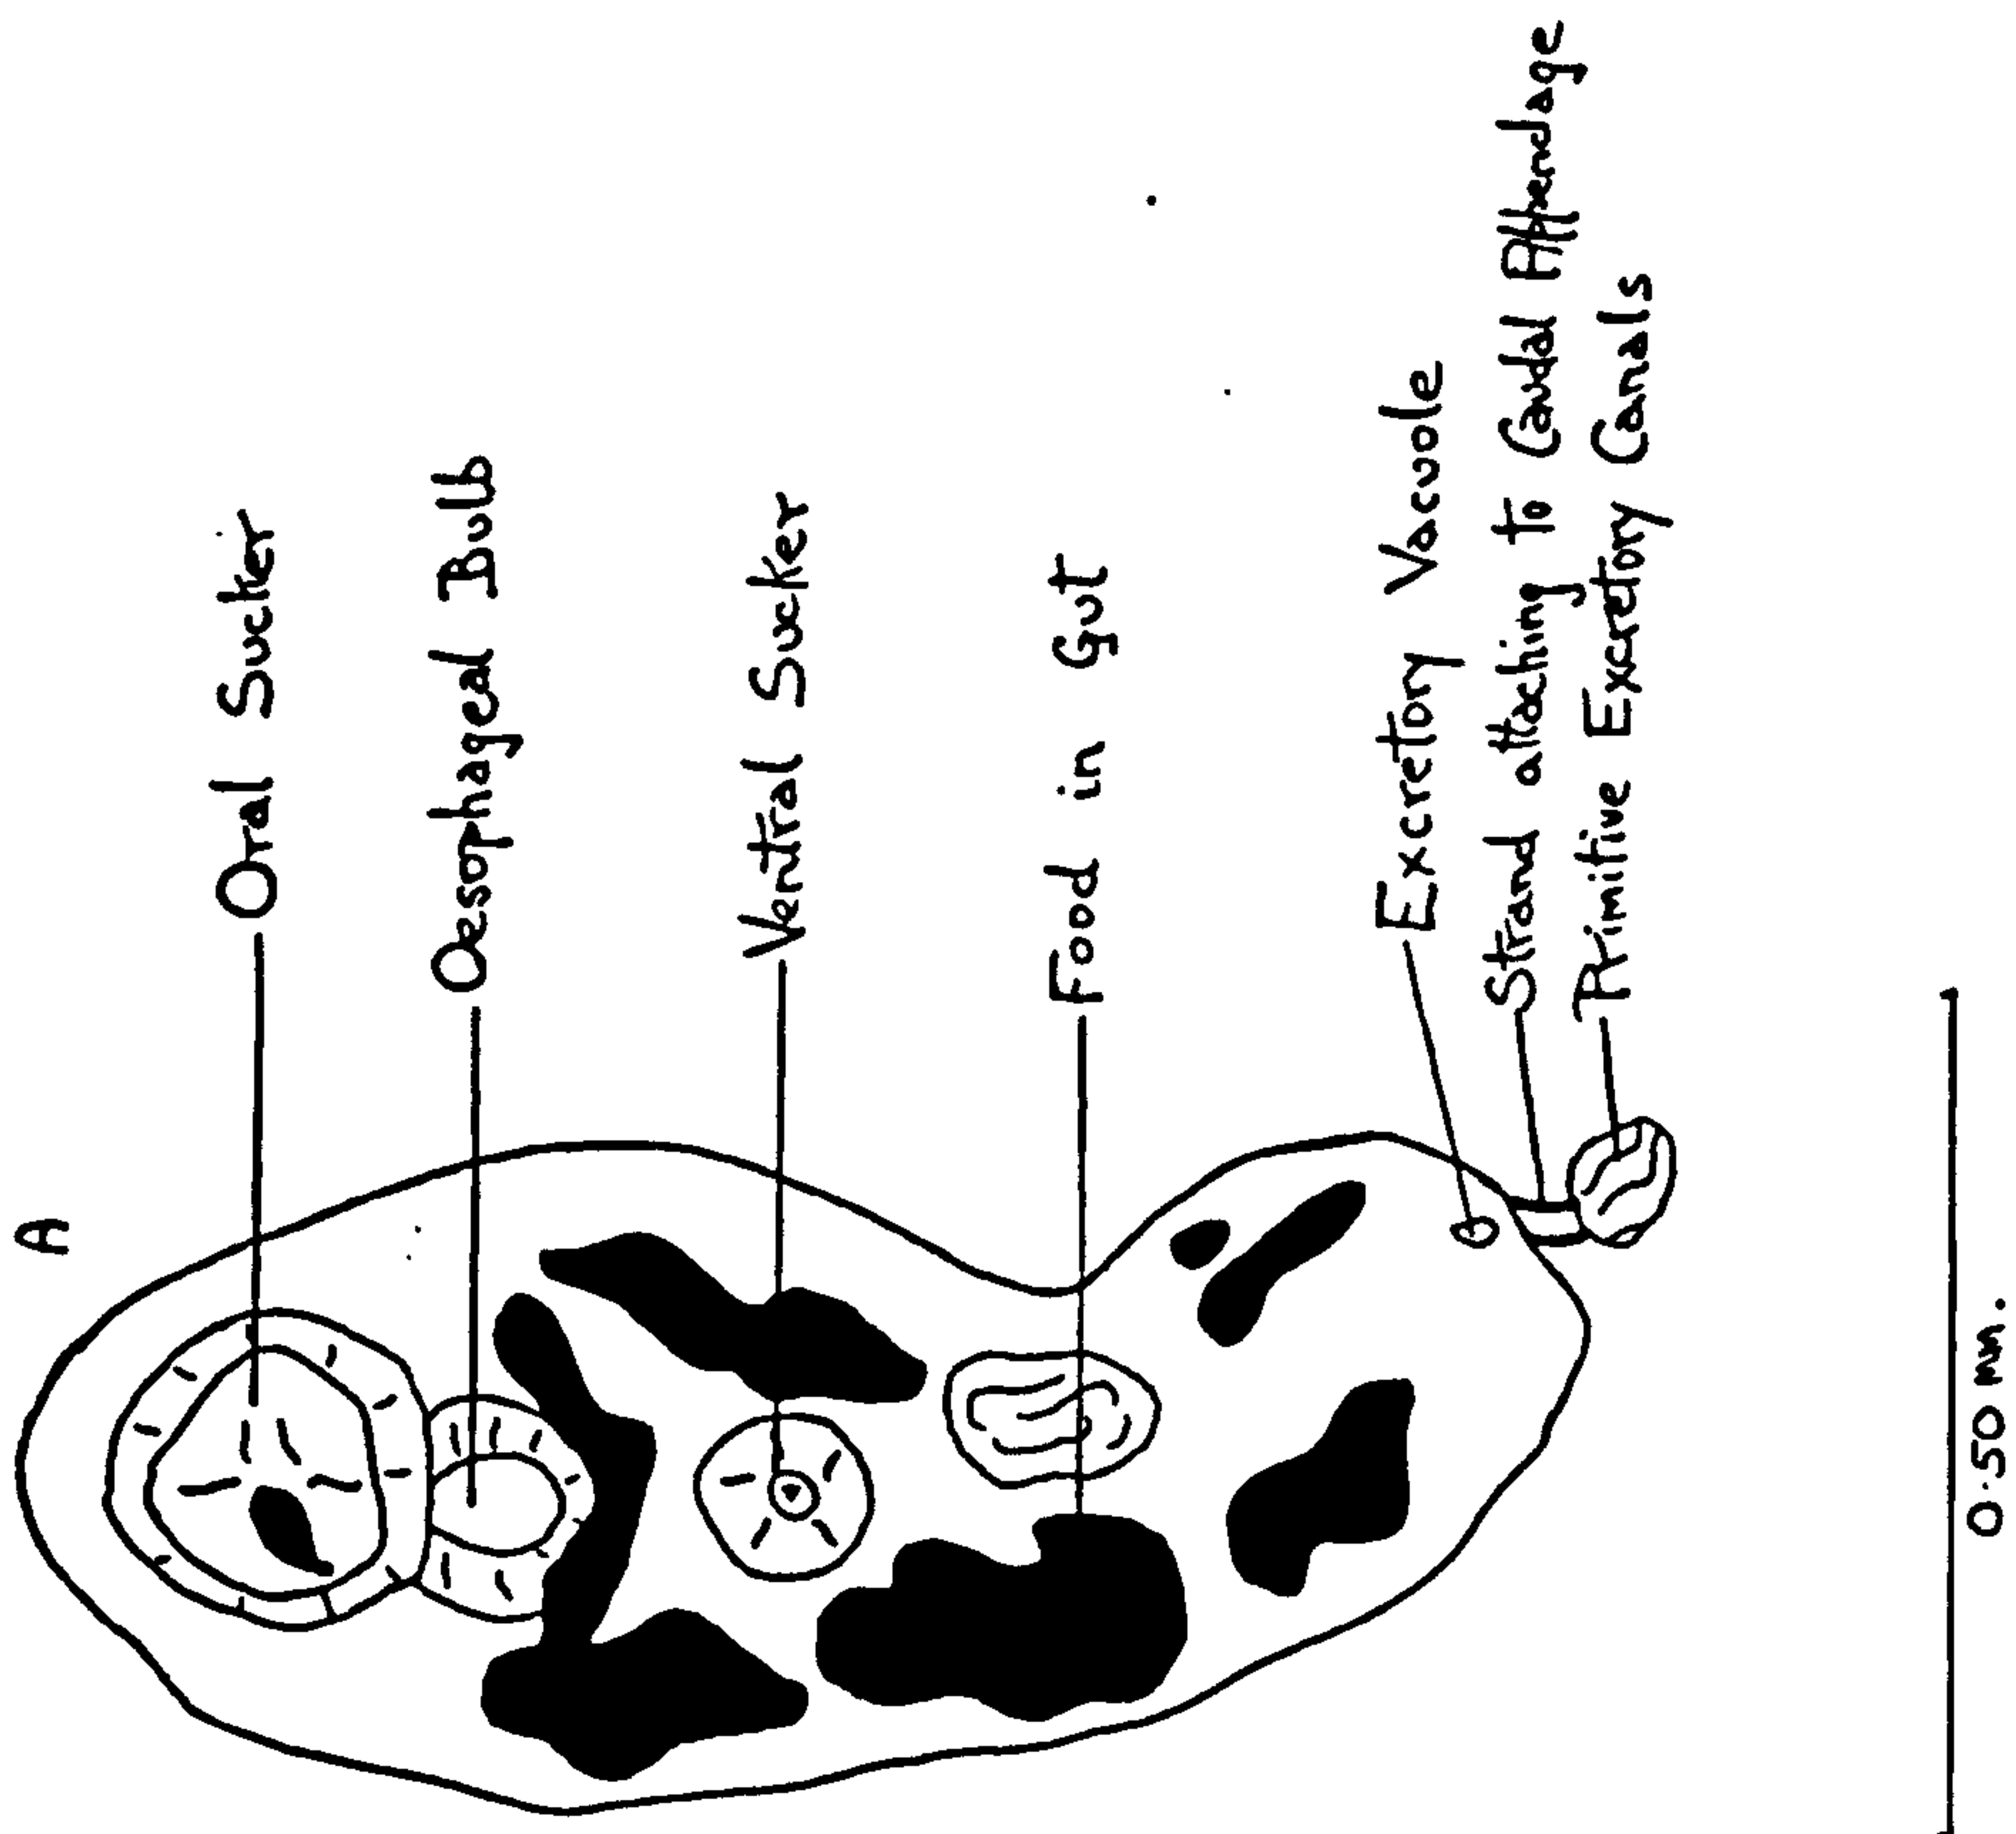 A
Oral Sucker
Oesophageal Bulb
Ventral Sucker
Food in Gut
Excretory Vacuole
Strand attaching to Caudal Appendage
Primitive Excretory Canals
0.50 mm.